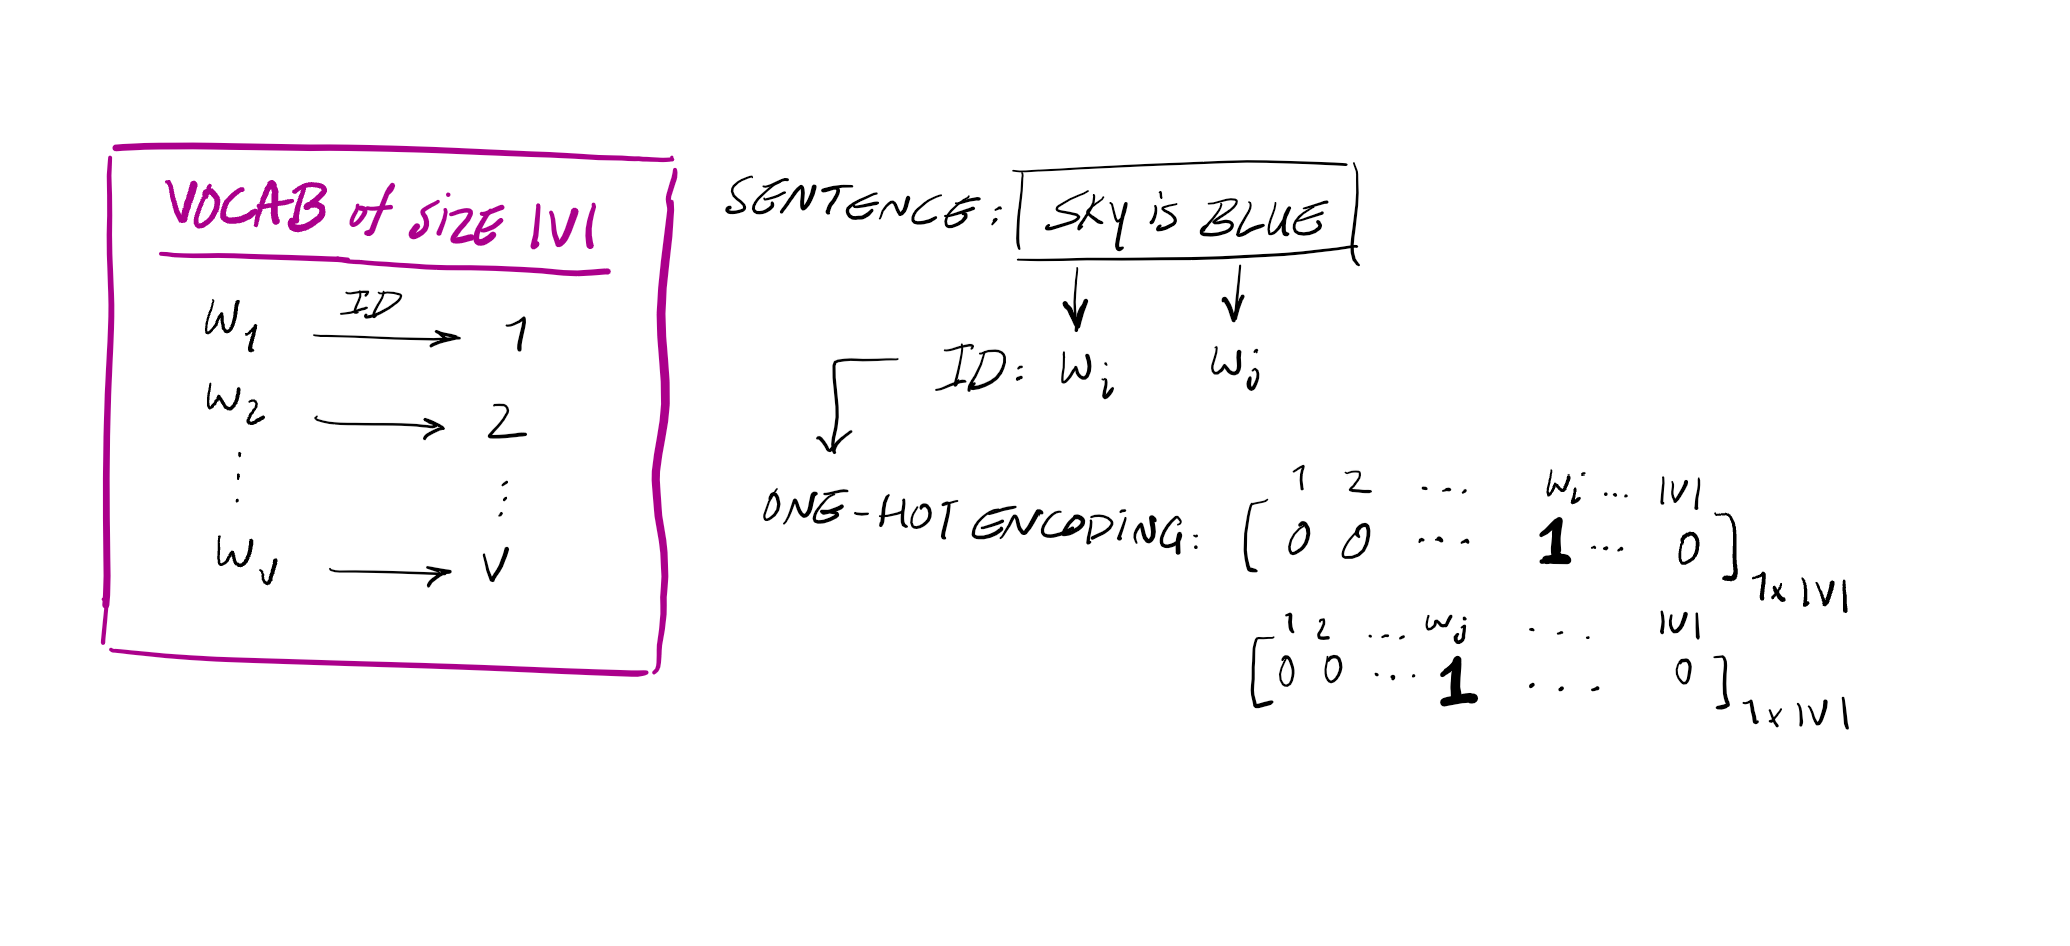 VOCAB of SiZE |V|
W1 ID 1
W2 2
⋮ ⋮
WV V
SENTENCE: SKY is BLUE
ID: Wi Wj
1 2 ... Wi ... |V|
ONE-HOT ENCODING: [0 0 ... 1 ... 0] 1x|V|
1 2 ... Wj ... |V|
[0 0 ... 1 ... 0] 1x|V|